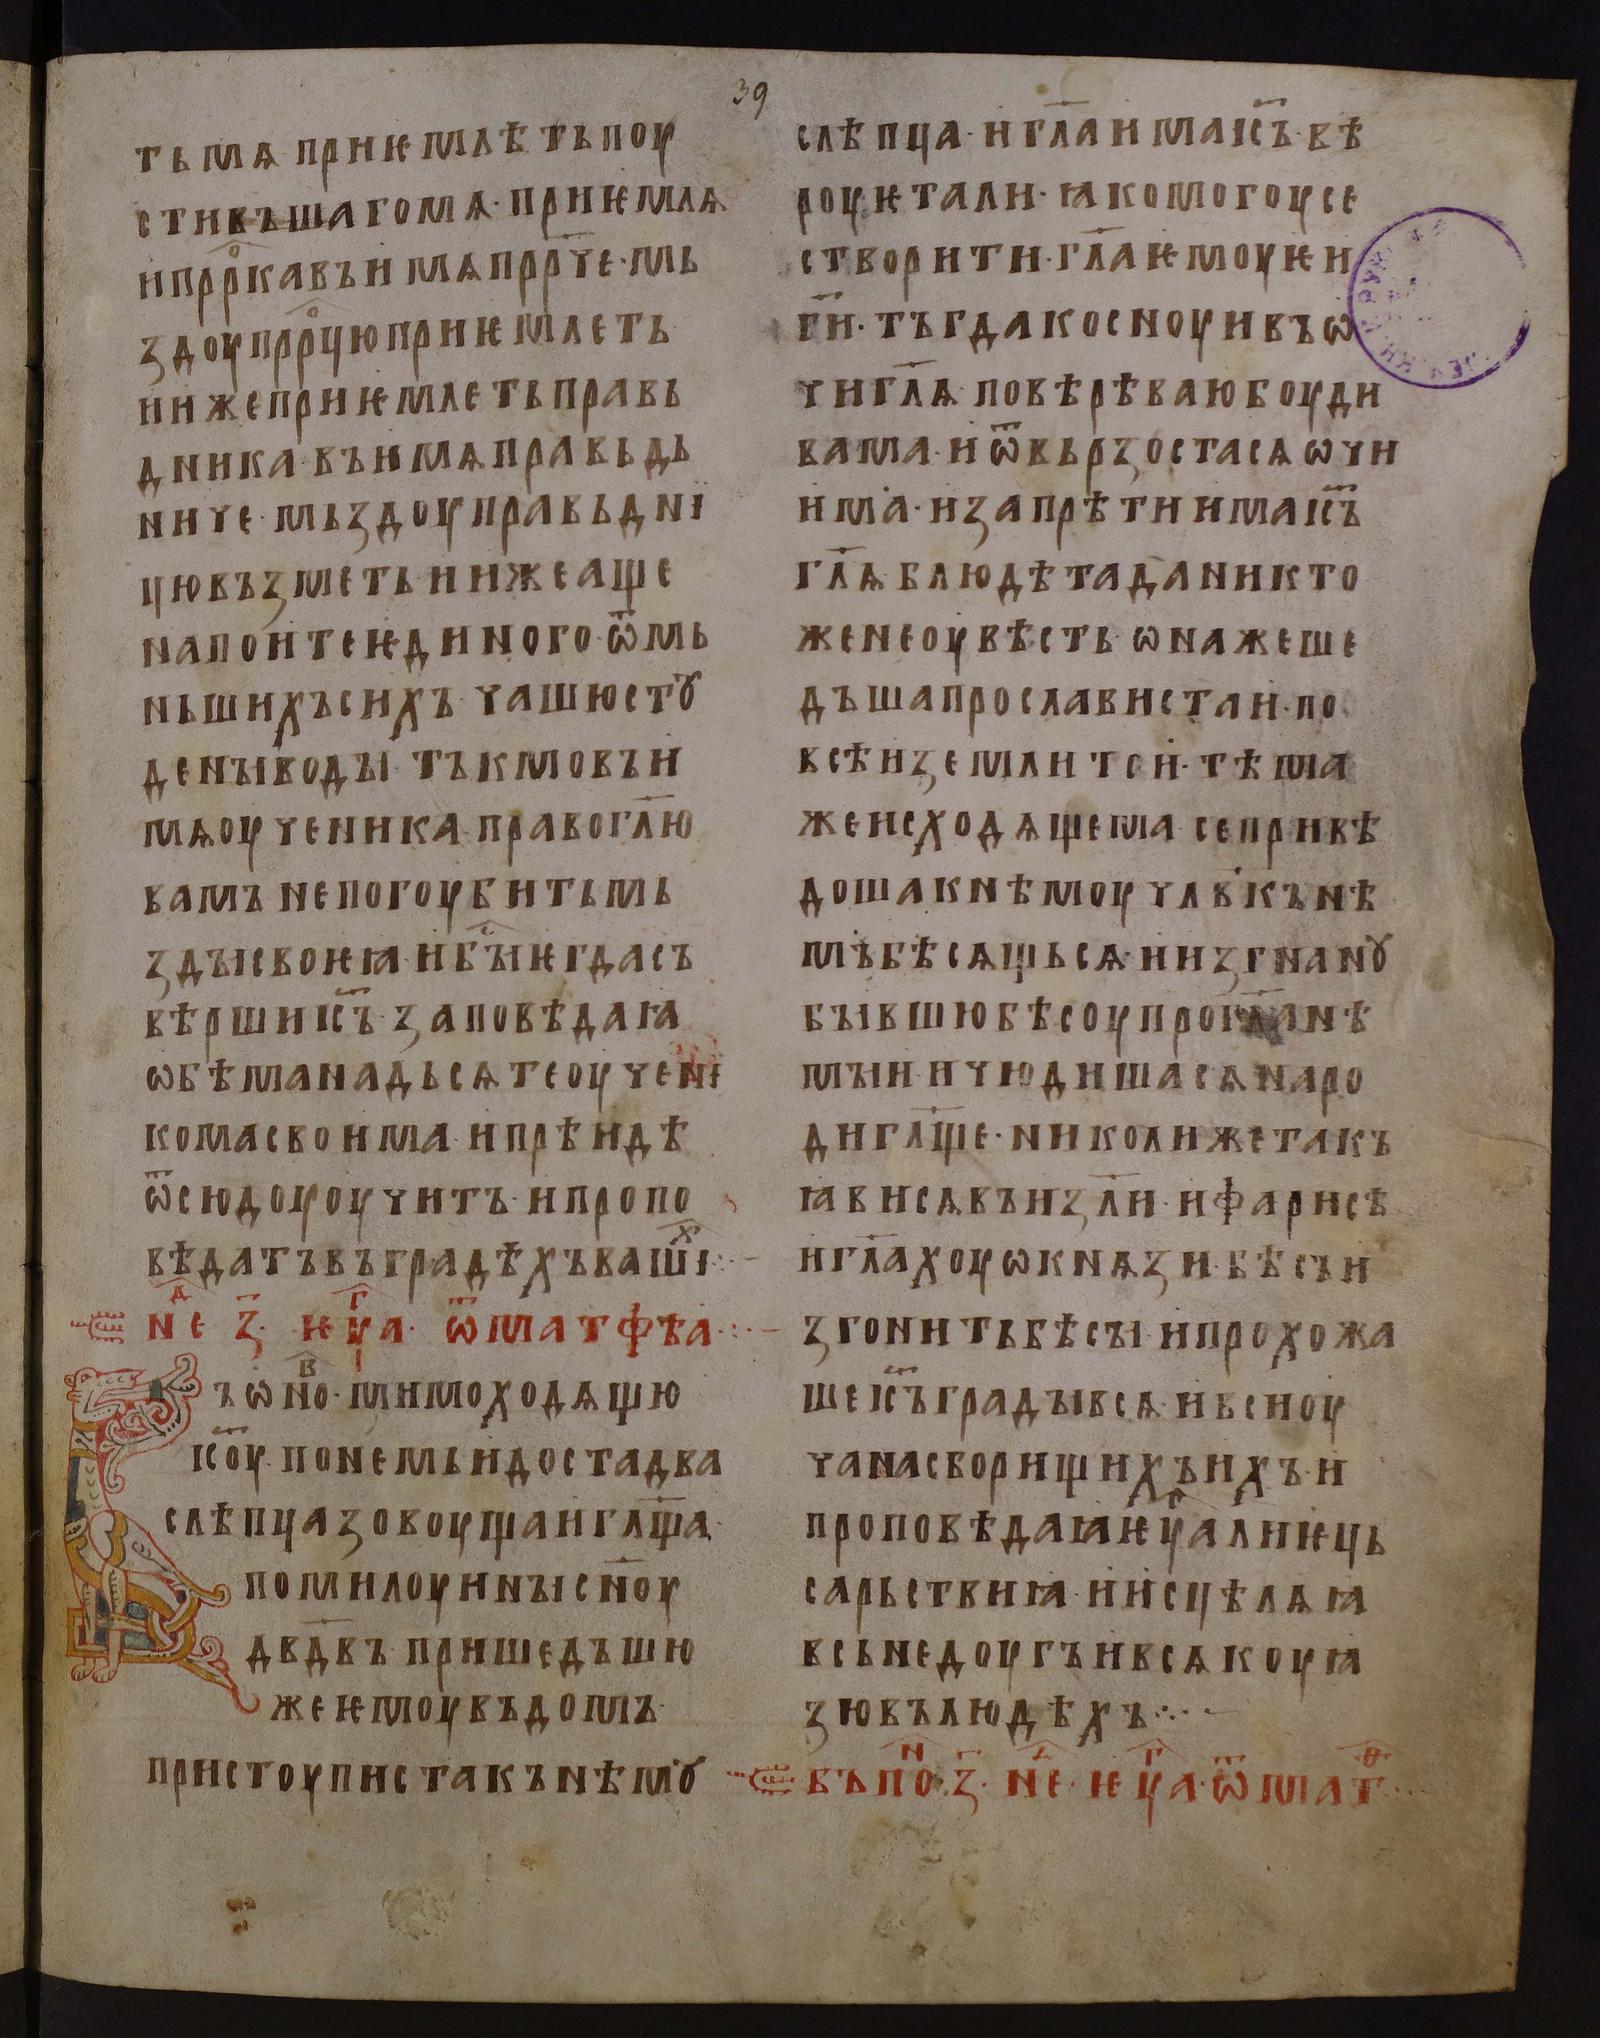 39
тьмѧ приѥмлѣть поу
стивъшагомѧ· приѥмлѧ
и прр҃ка въ имѧ прр҃че· мь
здоу прр҃чю приѥмлеть
и иже приѥмлеть правь
дника· въ имѧ правьдь
ниче· мьздоу правьдні
цю възметь· и иже аще
напоить ѥдиного ѿ мь
ньшихъ сихъ· чашю стꙋ
дены воды· тъкмо въ и
мѧ оученика· право гл҃ю
вамъ не погоубить мь
зды своѥꙗ· и бы҃ ѥгда съ
вѣрши іс҃ъ· заповѣдаꙗ
ѡбѣманадьсѧте оучені
кома своима· и прѣиде
ѿсюдоу оучитъ· и пропо
вѣдатъ въ градѣхъ ваші·:·–
не· з҃· ѥуа· ѿ матфѣа·:·–
ъ ѡно· мимоходѧщю
іс҃оу· по немь идоста два
слѣпца зовоуща и гл҃ща·
помилоуи ны сн҃оу
дв҃двъ· пришедъшю
же ѥмоу въ домъ·
пристоуписта къ нѣмꙋ
слѣпца· и гл҃а има іс҃ъ· вѣ
роуѥта ли· ꙗко могоу се
створити· гл҃а ѥмоу ѥи
г҃и· тъгда косноуи въ ѡ
чи гл҃ѧ по вѣрѣ ваю боуди
вама· и ѿвьрзоста сѧ ѡчи
има· и запрѣти има іс҃ъ
гл҃ѧ блюдѣта да никто
же не оувѣсть· ѡна же ше
дъша прослависта и· по
всѣи земли тои· тѣма
же исходѧщема· се привѣ
доша к нѣмоу чл҃вкъ нѣ
мъ бѣсѧщь сѧ· и изгнанꙋ
бывшю бѣсоу прогл҃а нѣ
мыи· и чюдиша сѧ наро
ди гл҃ще· николиже такъ
ꙗви сѧ въ из҃ли· и фарисѣ
и гл҃ахоу ѡ кнѧзи бѣсъ и
згонить бѣсы· и прохожа
ше іс҃ъ грады всѧ· и вьси оу
ча на сборищихъ ихъ· и
проповѣдаꙗ ѥуалиѥ ць
сарьствиꙗ· и исцѣлѧꙗ
всь недоугъ и всѧкоу ꙗ
зю въ людѣхъ·:·–
въ по· з҃· не· ѥуа· ѿ мат·